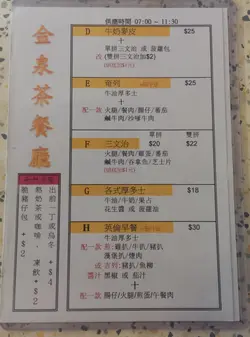 供應時間 07:00 - 11:30
金泉茶餐廳
D 牛奶麥皮 $25
+
單拼三文治 或 菠蘿包
E $25
牛油厚多士
配一款 火腿/餐肉/腸仔/番茄
鹹牛肉/沙嗲牛肉
單拼 雙拼
F 三文治 $20 $22
火腿/餐肉/雞蛋/番茄
鹹牛肉/吞拿魚/芝士片
G 各式厚多士 $18
牛油/牛奶/果占
花生醬 或 菠蘿油
H 英倫早餐 $30
牛油厚多士
+
配一款 煎: 雞扒/牛扒/豬扒
漢堡扒/煙肉
或 吉列: 豬扒/魚柳
醬汁 黑椒 或 茄汁
+
配一款 腸仔/火腿/煎蛋/午餐肉
出前一丁或烏冬 + $4
熱奶茶或咖啡，凍飲 + $2
脆豬仔包 + $2